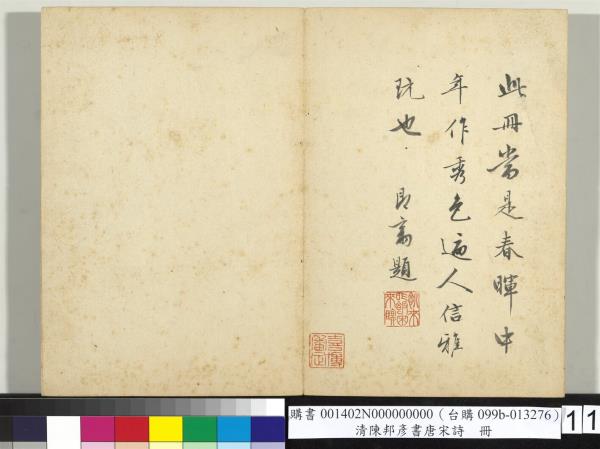 此冊當是春暉中
年作秀色逼人信雅
玩也
題
購書 001402N000000000 (台購 099b-013276)
清陳邦彥書唐宋詩 冊
11